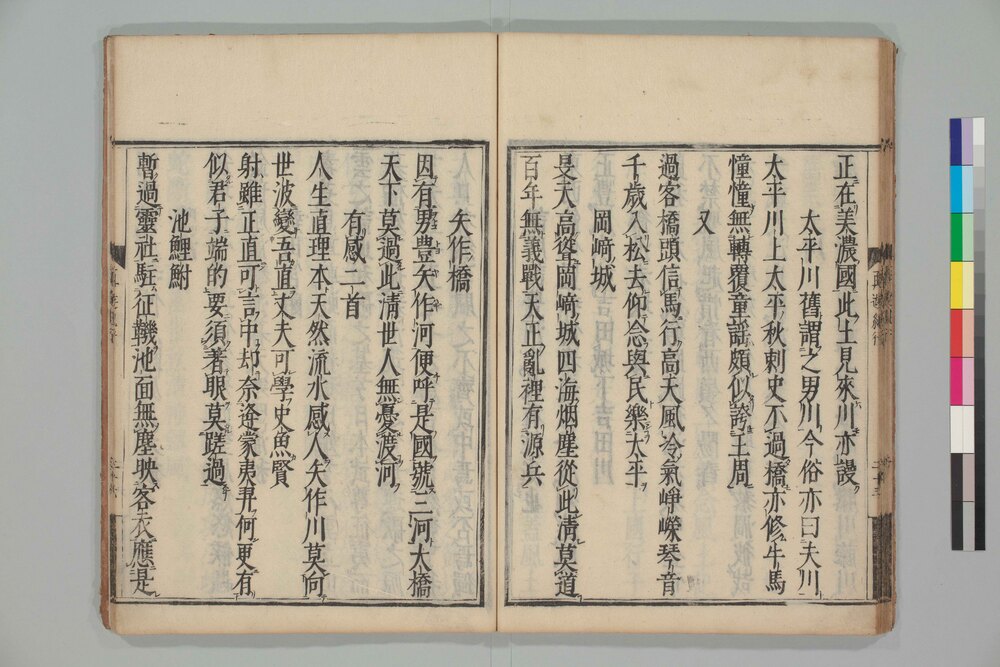 正在美濃國此土見來川亦謾
太平川舊謂之男川今俗亦曰夫川
太平川上太平秋刺史不過橋亦修牛馬
憧憧無轉覆童謡頗似誇王周
又
過客橋頭信馬行高天風冷氣崢嶸琴音
千歳入松去仰念與民樂太平
岡﨑城
旻天高聳岡﨑城四海烟塵從此清莫道
百年無義戰天正亂裡有源兵
矢作橋
因有男豊矢作河便呼是國號三河大橋
天下莫過此清世人無憂渡河
有感二首
人生直理本天然流水感人矢作川莫向
世波變吾直丈夫可學史魚賢
射雖正直可言中却奈逄蒙夷羿何更有
似君子端的要須著眼莫蹉過
池鯉鮒
暫過靈社駐征鞿池面無塵映客衣應是